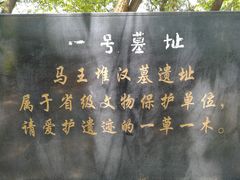 一号墓址
马王堆汉墓遗址
属于省级文物保护单位,
请爱护遗迹的一草一木。